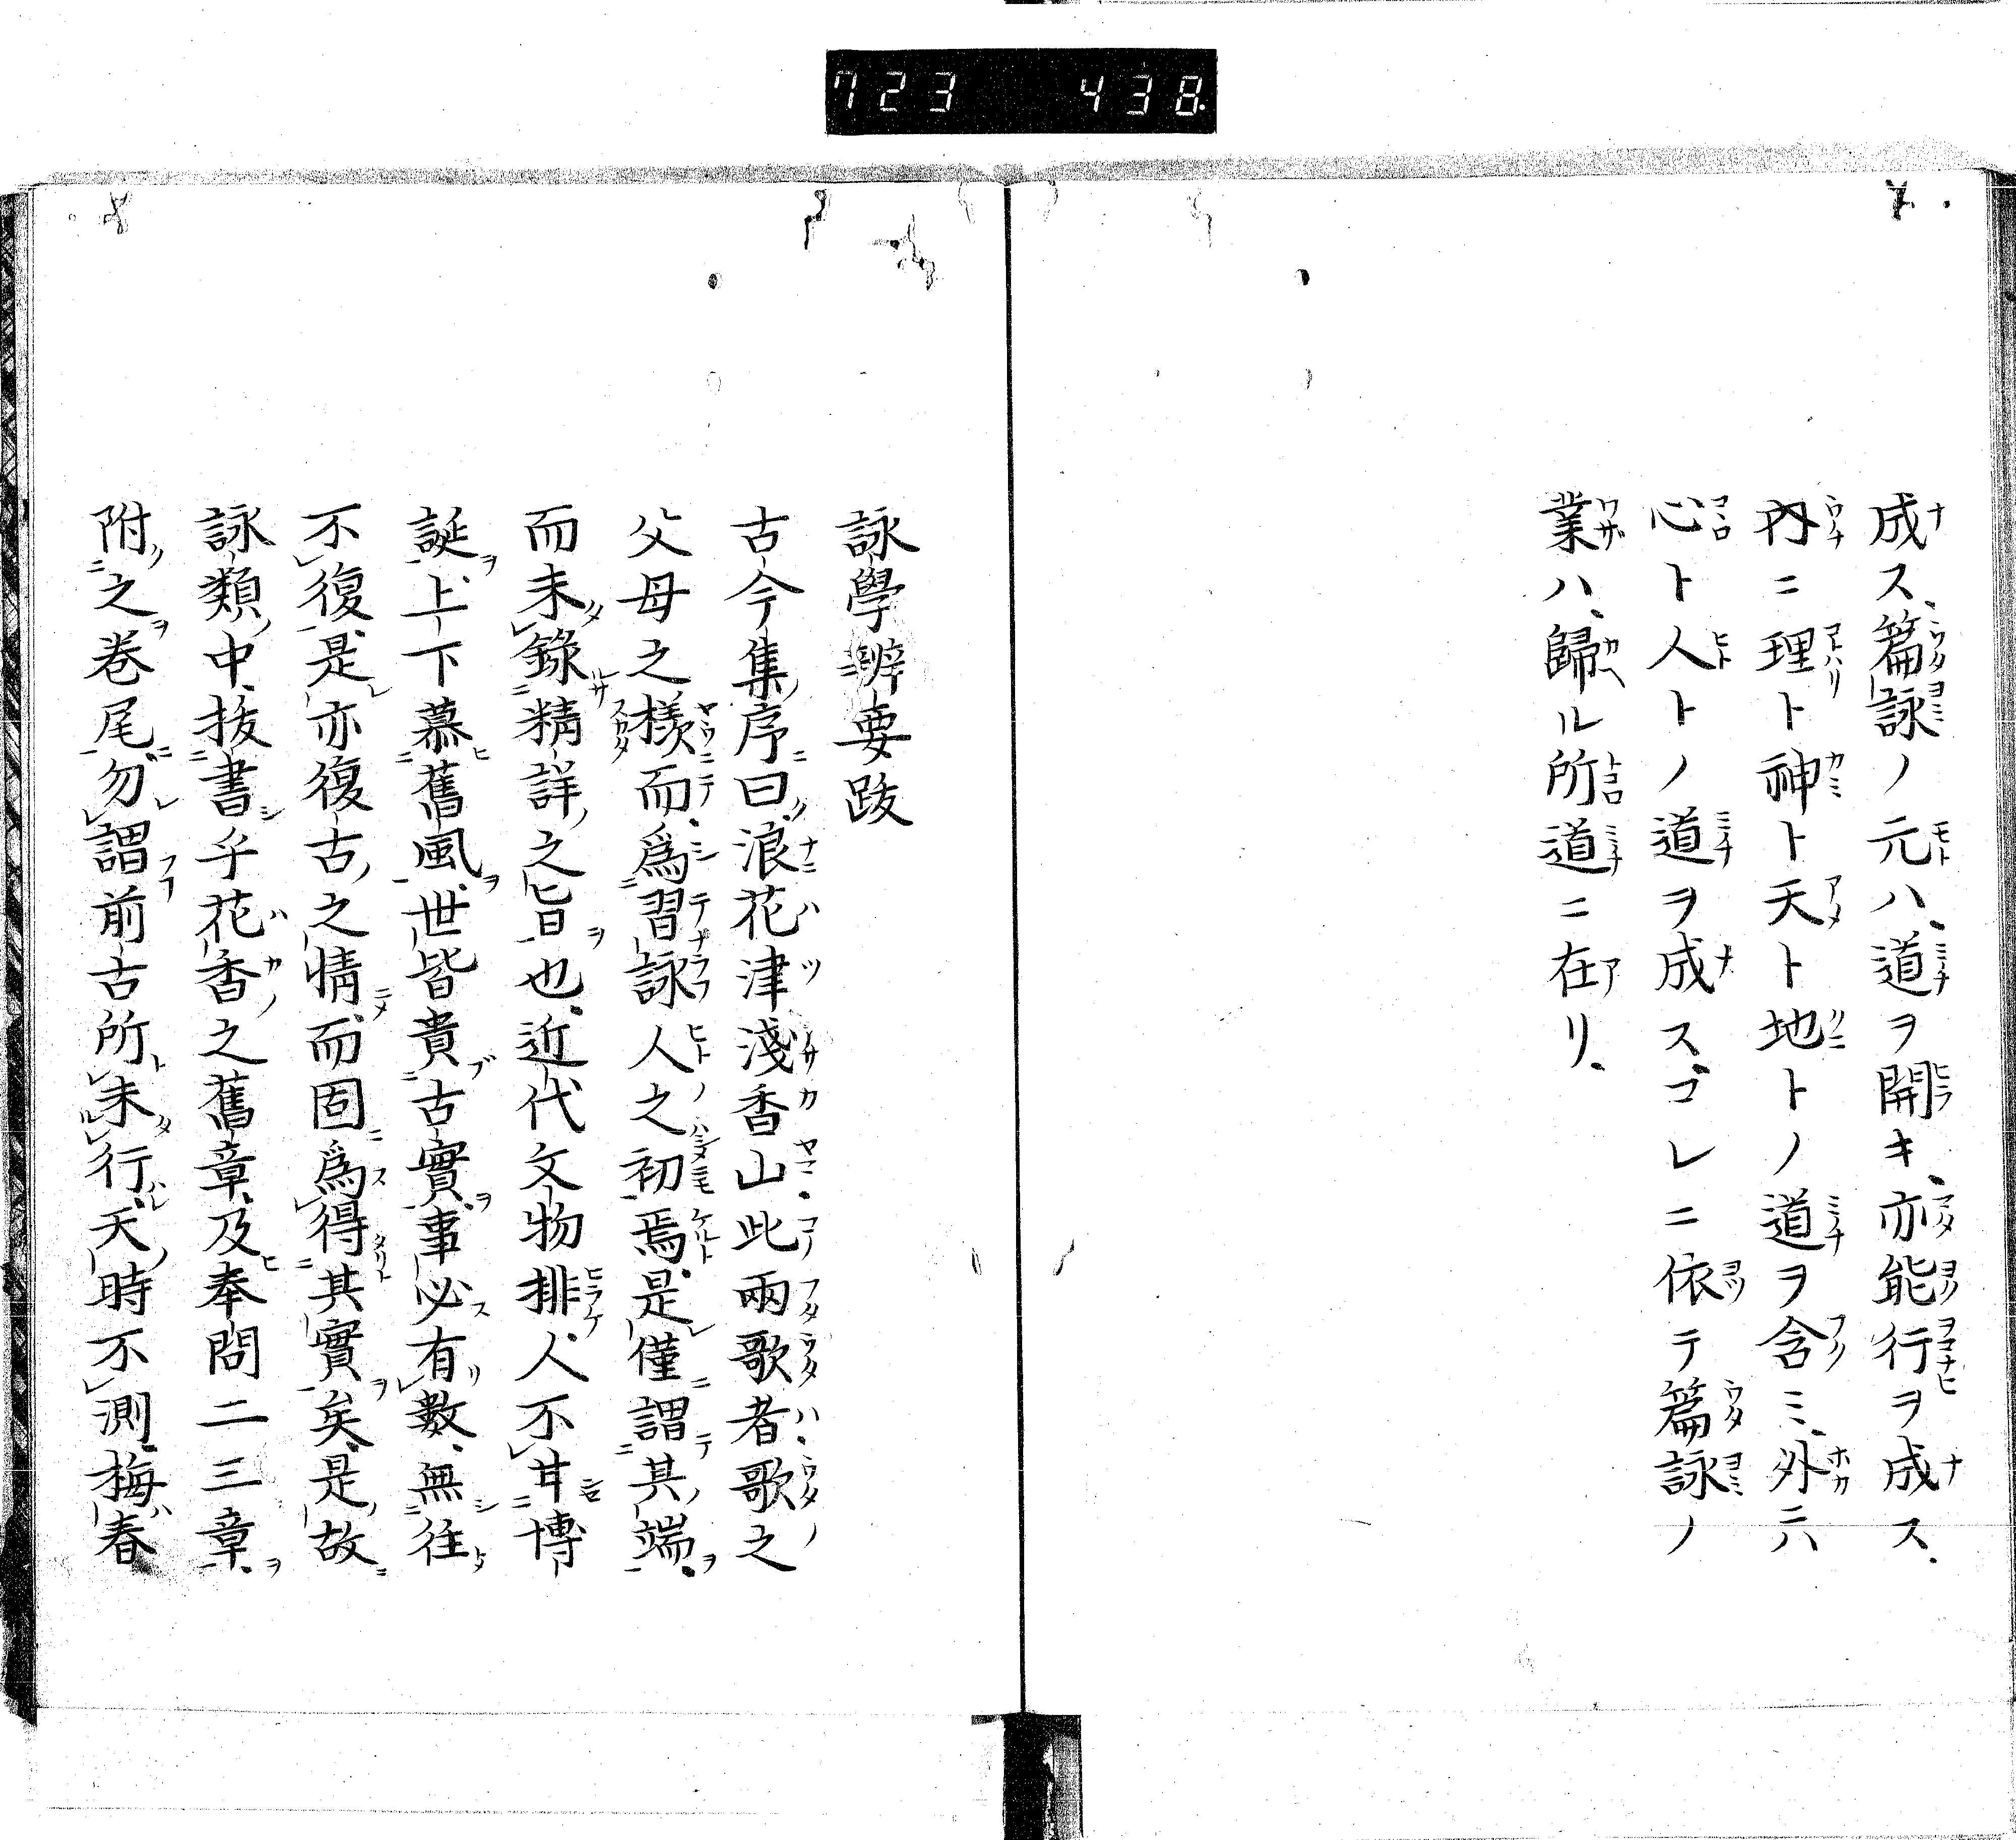 723 438
成ス、篇詠ノ元ハ、道ヲ開キ、亦能行ヲ成ス、
內ニ理ト神ト天ト地トノ道ヲ含ミ、外ニハ
心ト人トノ道ヲ成ス、コレニ依テ篇詠ノ
業ハ、歸ル所道ニ在リ、
詠學辨要跋
古今集序曰、浪花津淺香山、此兩歌者、歌之
父母之樣而、爲習詠人之初焉、是僅謂其端、
而未錄精詳之旨也、近代文物排、人不甘博
誕、上下慕舊風、世皆貴古實、事必有數、無往
不復、是亦復古之情、而固爲得其實矣、是故
詠類中、拔書乎花香之舊章、及奉問二三章、
附之卷尾、勿謂前古所未行、天時不測、梅春